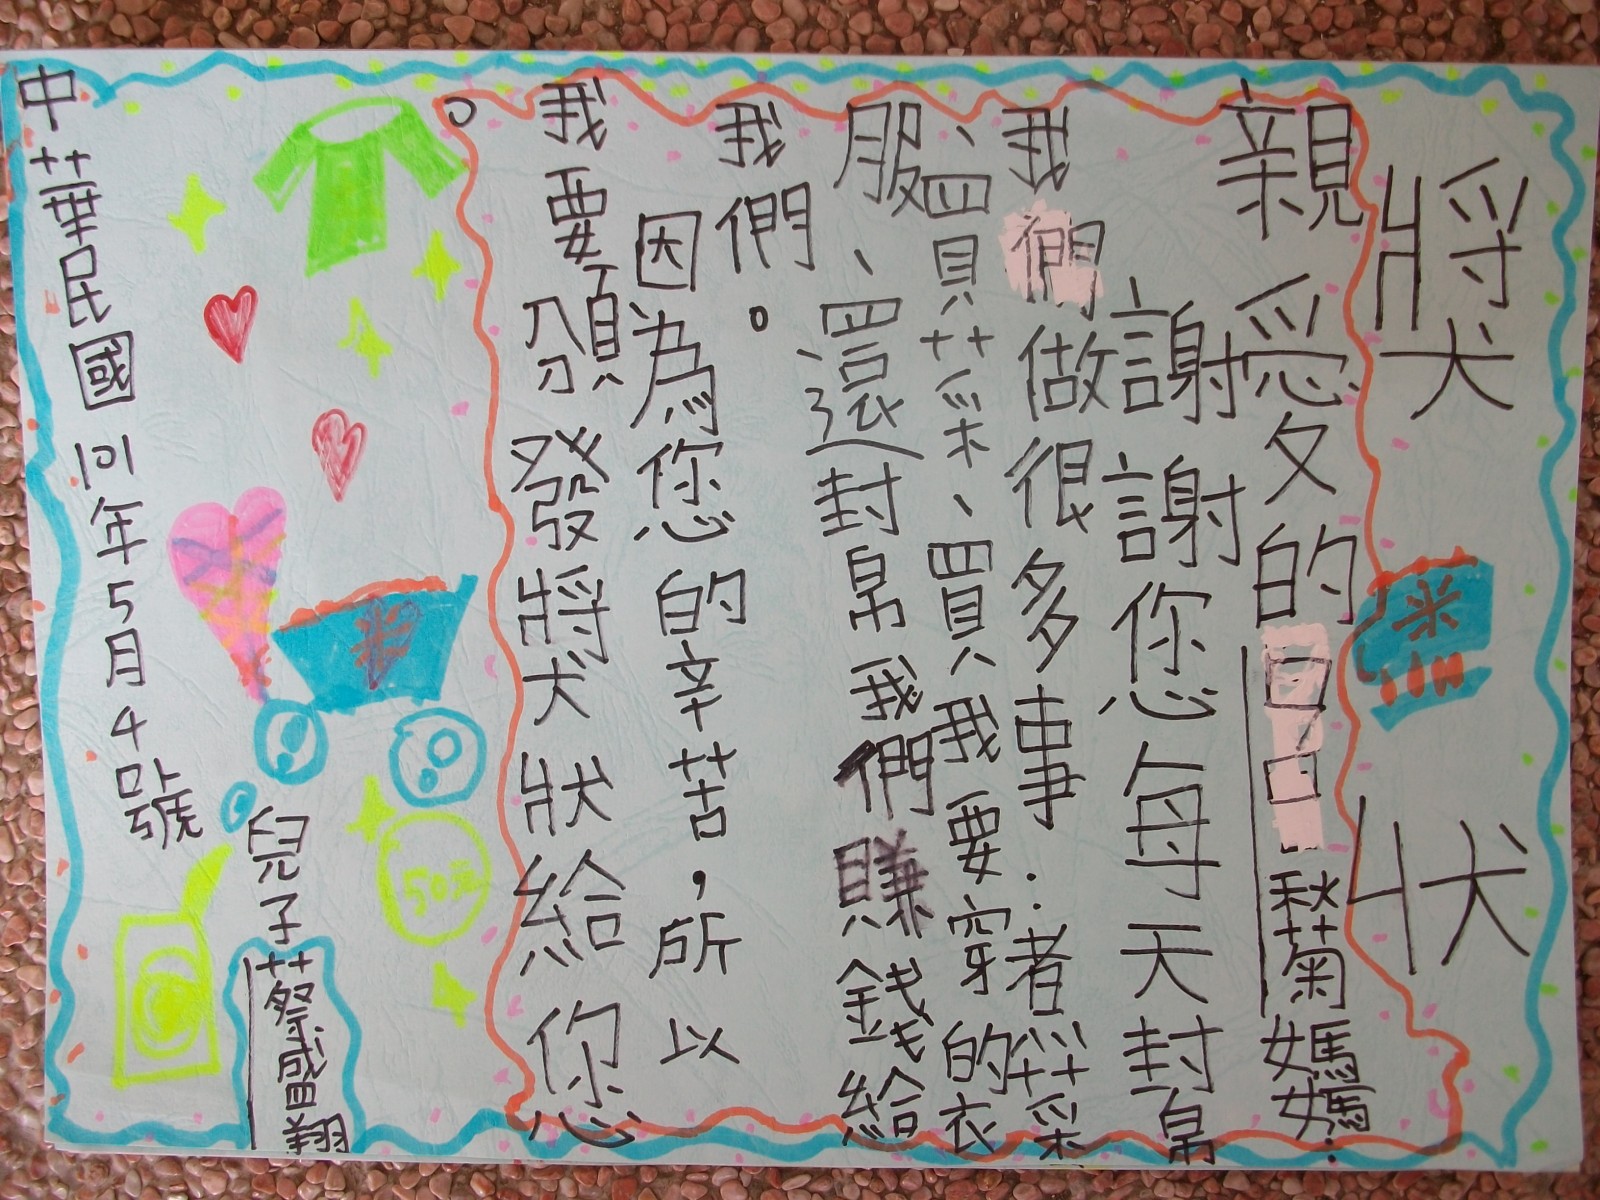 獎狀
親愛的秋菊媽媽:
謝謝您每天幫
我們做很多事:煮菜
、買菜、買我要穿的衣
服、還幫我們賺錢給
我們。
因為您的辛苦,所以
我要頒發獎狀給您
。
50元
兒子蔡盛翔
中華民國101年5月4號